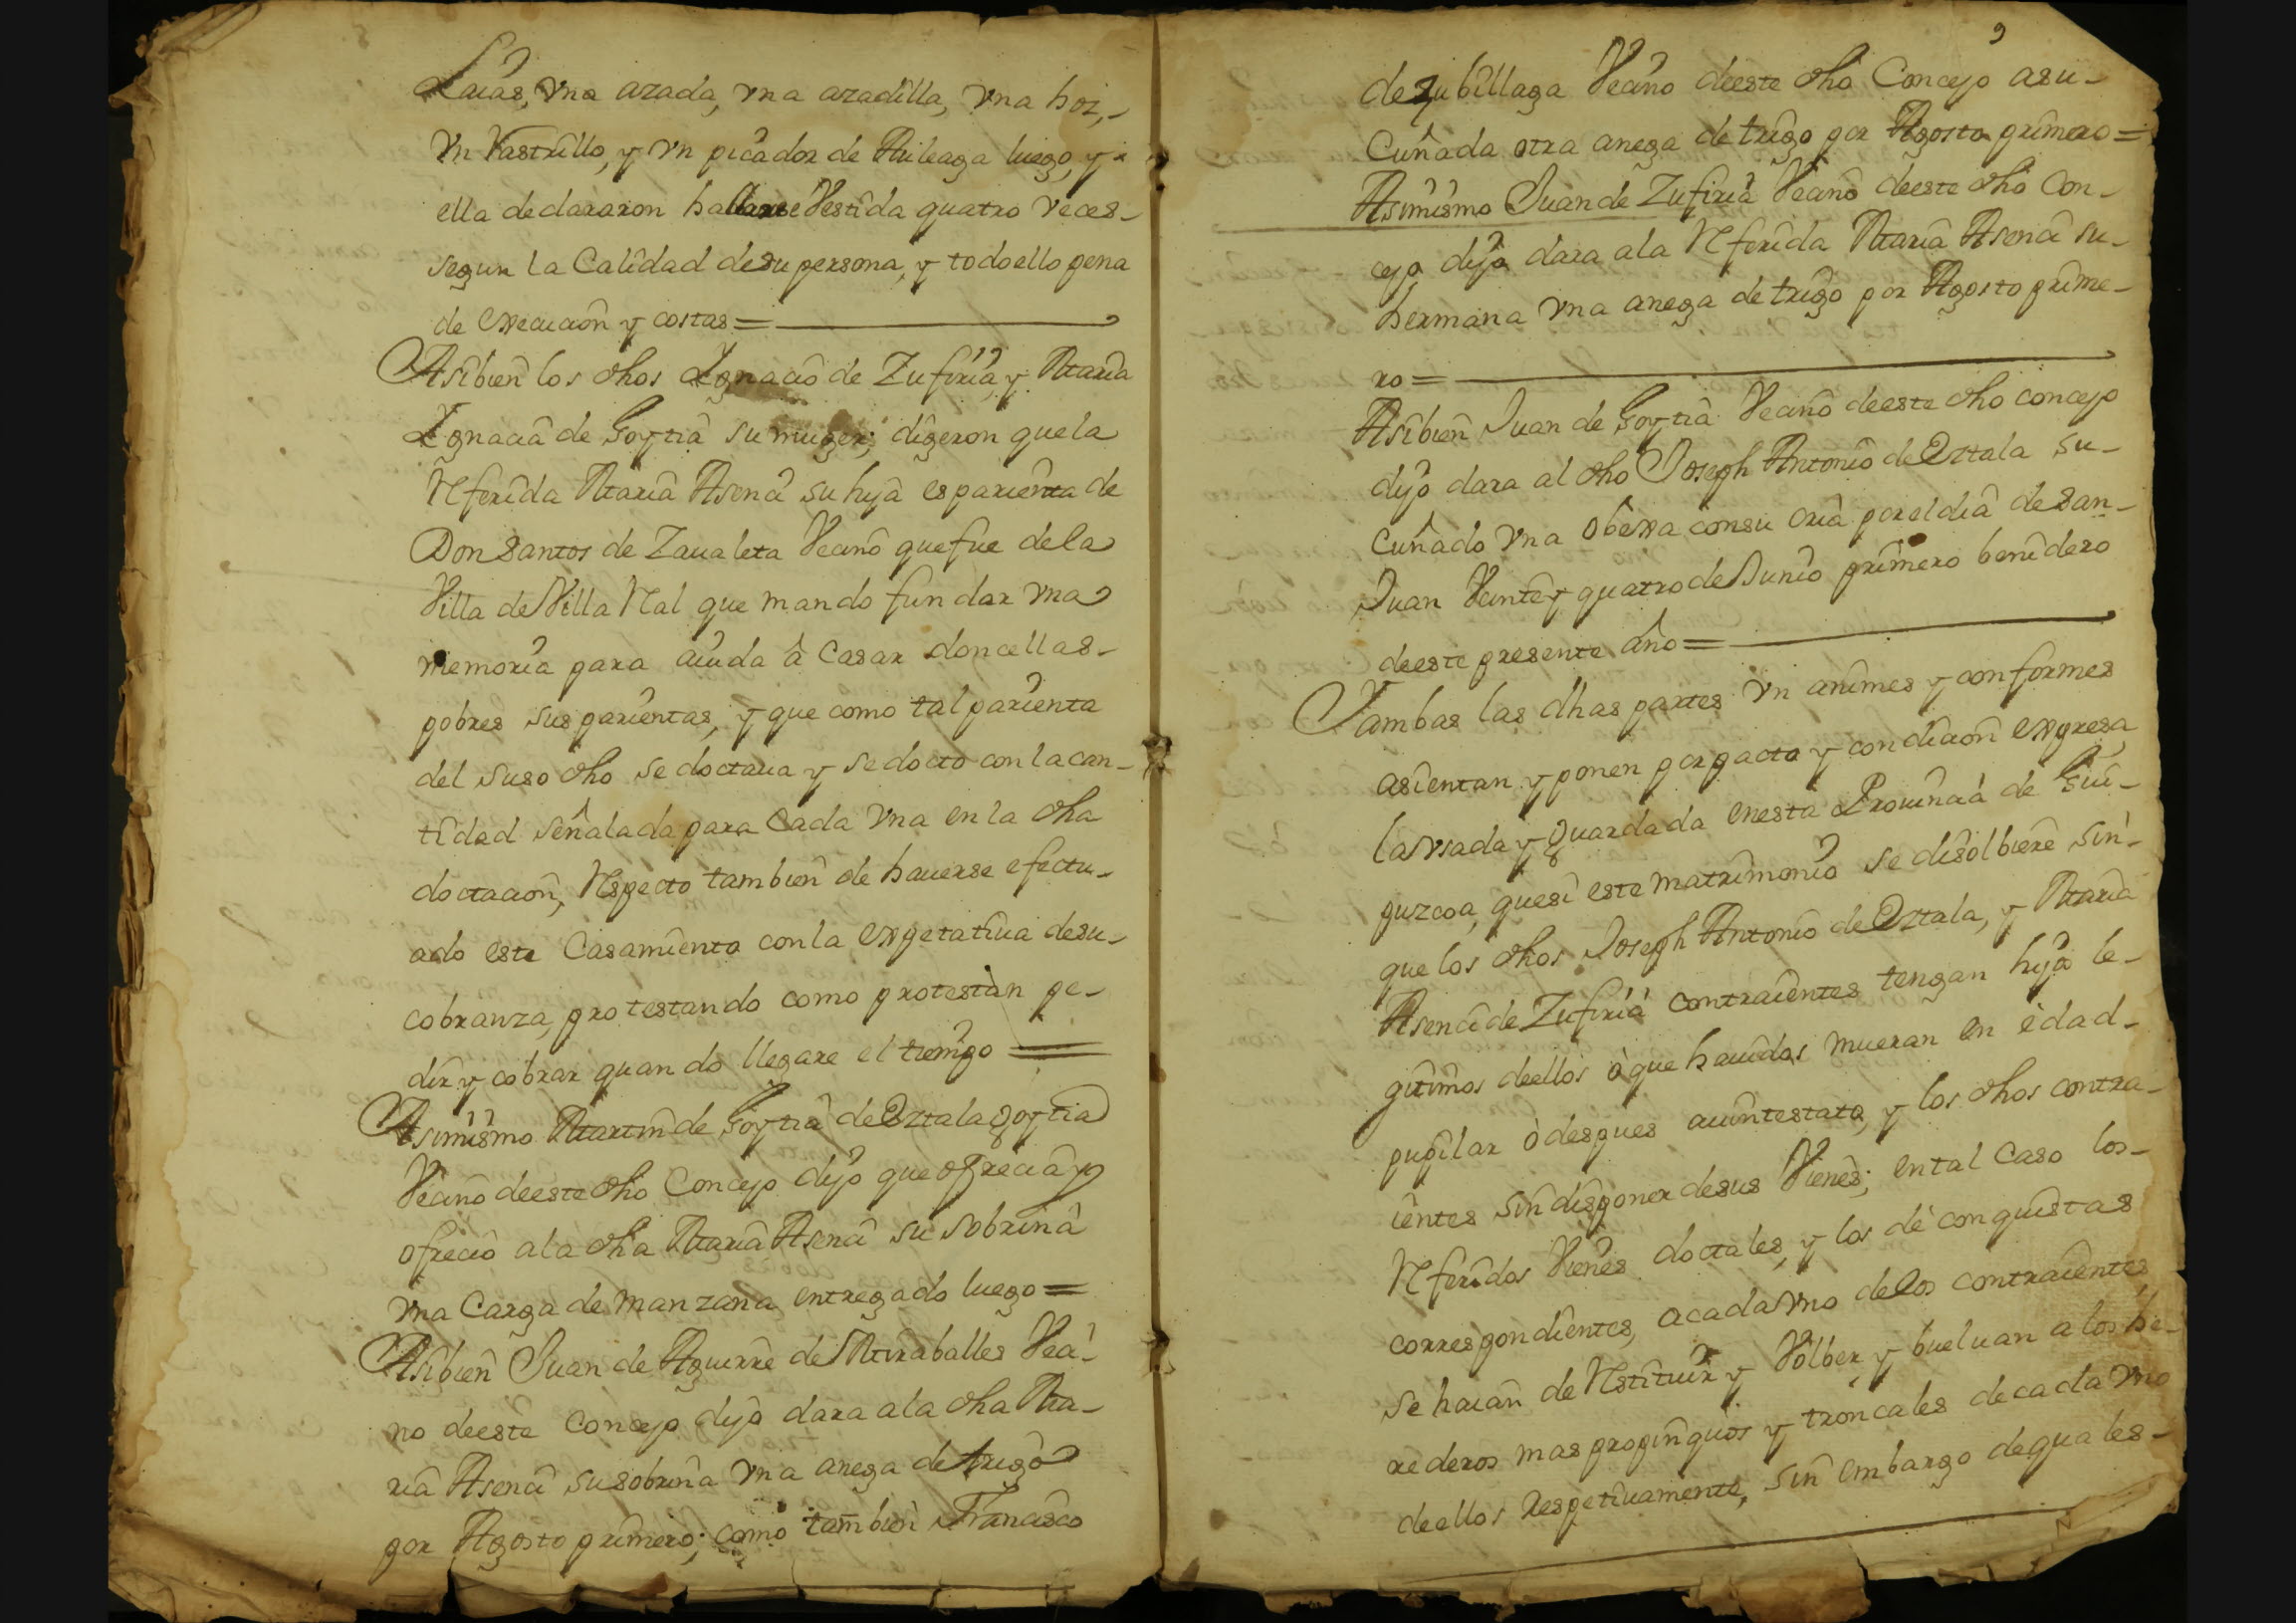 Laias, vna azada, vna azadilla, vna hoz,-
vn rastrillo, y vn picador de Aileaga luego, y
ella declararon hallarse vestida quatro veces-
segun la Calidad de su persona, y todo ello pena
de execucion y costas =
Asibien los dhos Ygnacio de Zufiria, y Maria
Ygnacia de Goytia su muger; digeron que la
Referida Maria Asencia su hija es parienta de
Don Santos de Zaualeta Vecino que fue de la
Villa de Villa Real que mando fundar vna
memoria para aiuda â Casar doncellas-
pobres sus parientas, y que como tal parienta
del suso dho se doctaua y se docto con la can-
tidad señalada para Cada vna en la dha
doctacion, Respecto tambien de hauerse efectu-
ado este Casamiento con la expetatiua de su-
cobranza, protestando como protestàn pe-
dir y cobrar quando llegare el tiempo =
Asimismo Martin de Goytia de Oztala goytia
Vecino de este dho Concejo dijo que ofrecia y
ofrecio a la dha Maria Asencia su sobrina
vna Carga de manzana entregado luego =
Asibien Juan de Aguirre de Miraballes Veci-
no de este Concejo dijo dara a la dha Ma-
ria Asencia su sobrina vna anega de trigo
por Agosto primero; como tambien Francisco
9
de Zubillaga Vecino de este dho Concejo a su-
Cuñada otra anega de trigo por Agosto primero =
Asimismo Juan de Zufiria Vecino de este dho Con-
cejo dijo dara a la Referida Maria Asencia su-
hermana vna anega de trigo por Agosto prime-
ro =
Asibien Juan de Goytia Vecino de este dho concejo
dijo dara al dho Joseph Antonio de Oztala su-
Cuñado vna Obexa con su cria por el dia de San-
Juan Veinte y quatro de Junio primero benidero
de este presente año =
Y ambas las dhas partes vnanimes y conformes
asientan y ponen por pacto y condicion expresa
la vsada y Guardada en esta Prouincia de Gui-
puzcoa, que si este matrimonio se disolbiere sin-
que los dhos Joseph Antonio de Oztala, y Maria
Asencia de Zufiria contraientes tengan hijo le-
gitimos de ellos ò que hauidos mueran en edad-
pupilar ò despues auintestato, y los dhos contra-
ientes sin disponer de sus Vienes; en tal Caso los-
Referidos Vienes doctales, y los de conquistas
correspondientes, a cada vno de los contraientes
se haian de Restituir y Volber y bueluan a los he-
rederos mas propinquos y troncales de cada vno
de ellos Respetiuamente, sin embargo de quales-